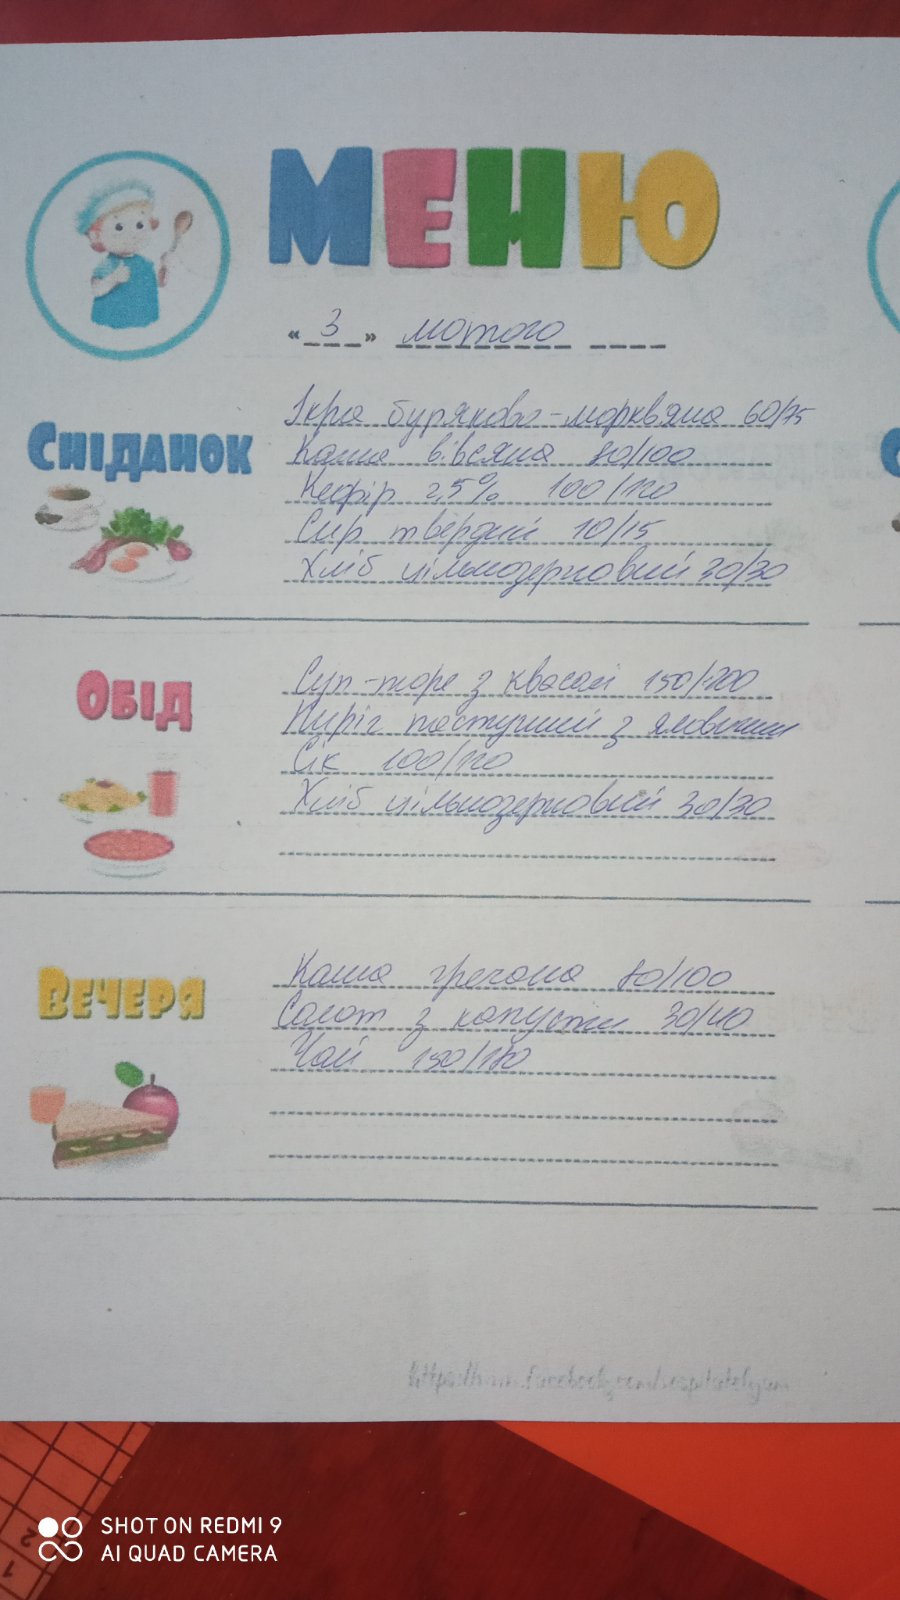 МЕНЮ
« 3 » лютого
СНІДАНОК
Ікра буряково-морквяна 60/75
Каша вівсяна 80/100
Кефір 2,5% 100/120
Сир твердий 10/15
Хліб цільнозерновий 30/30
ОБІД
Суп-пюре з квасолі 150/200
Пиріг пастуший з яловичини
Сік 100/120
Хліб цільнозерновий 30/30
ВЕЧЕРЯ
Каша гречана 80/100
Салат з капусти 30/40
Чай 150/180
SHOT ON REDMI 9
AI QUAD CAMERA
2
1